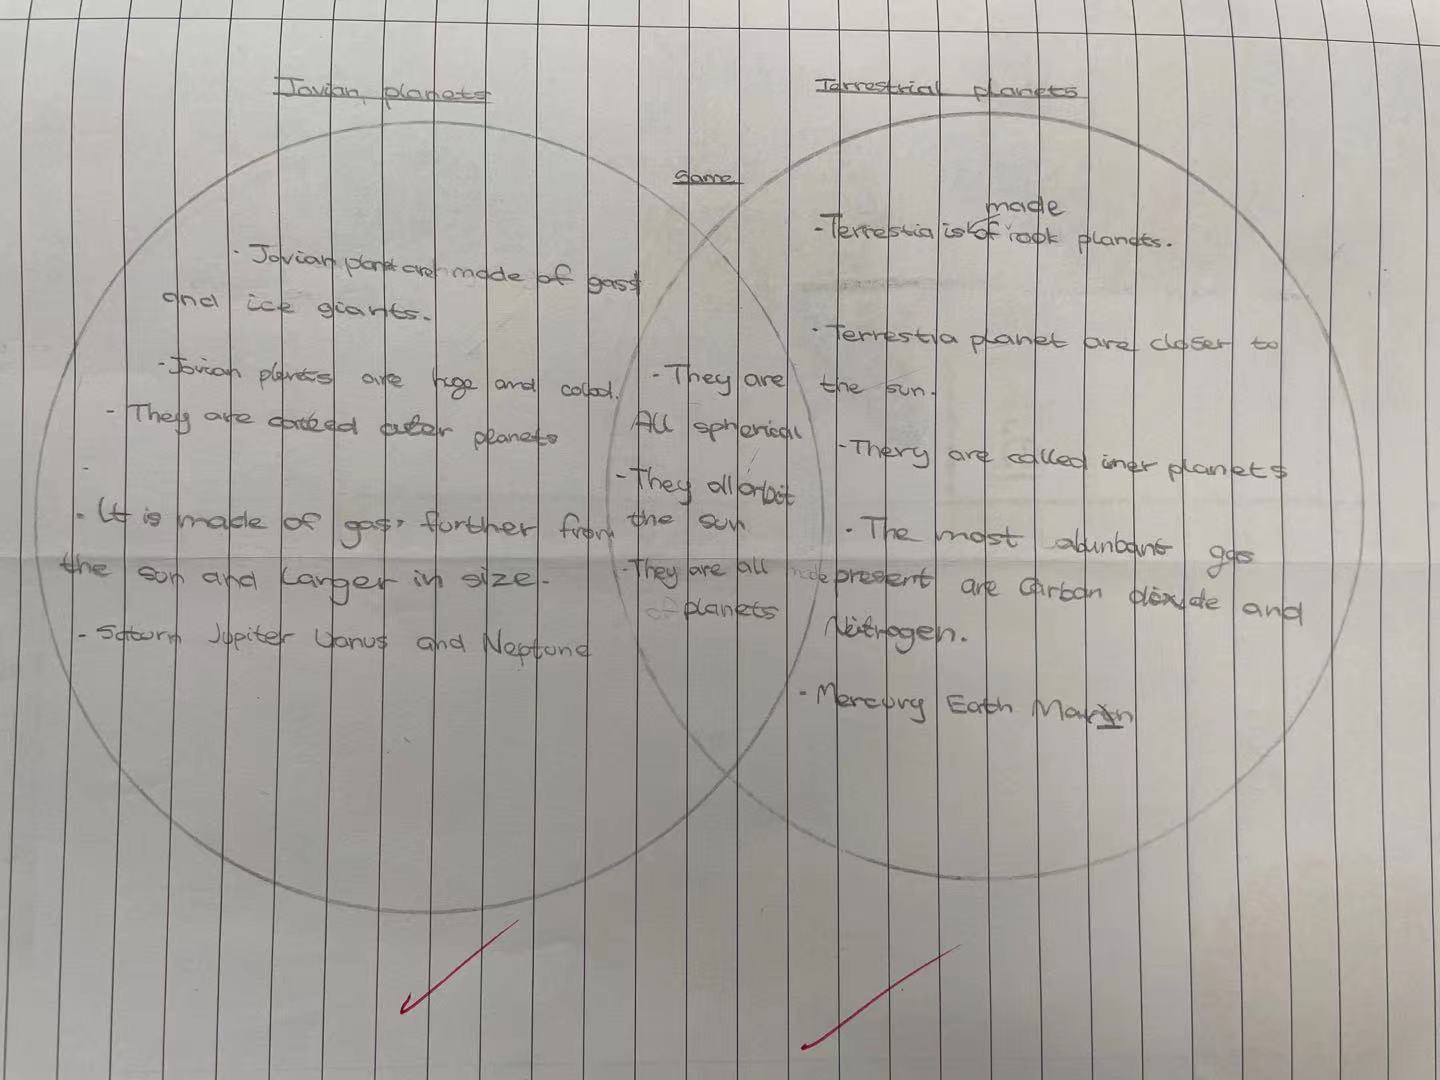 Jovian planets
- Jovian planet are made of gass
and ice giants.
- Jovian planets are huge and colod.
- They are called outer planets
-
- It is made of gas, further from
the son and Larger in size.
- Saturn Jupiter Uanus and Neptune
Same
- They are
All spherical
- They all orbit
the sun
- They are all
planets
Terrestrial planets
made
- Terrestia is of rook planets.
- Terrestia planet are closer to
the sun.
- Thery are called iner planets
- The most abunbant gas
present are Carbon dioxide and
Nitrogen.
- Mercury Eath